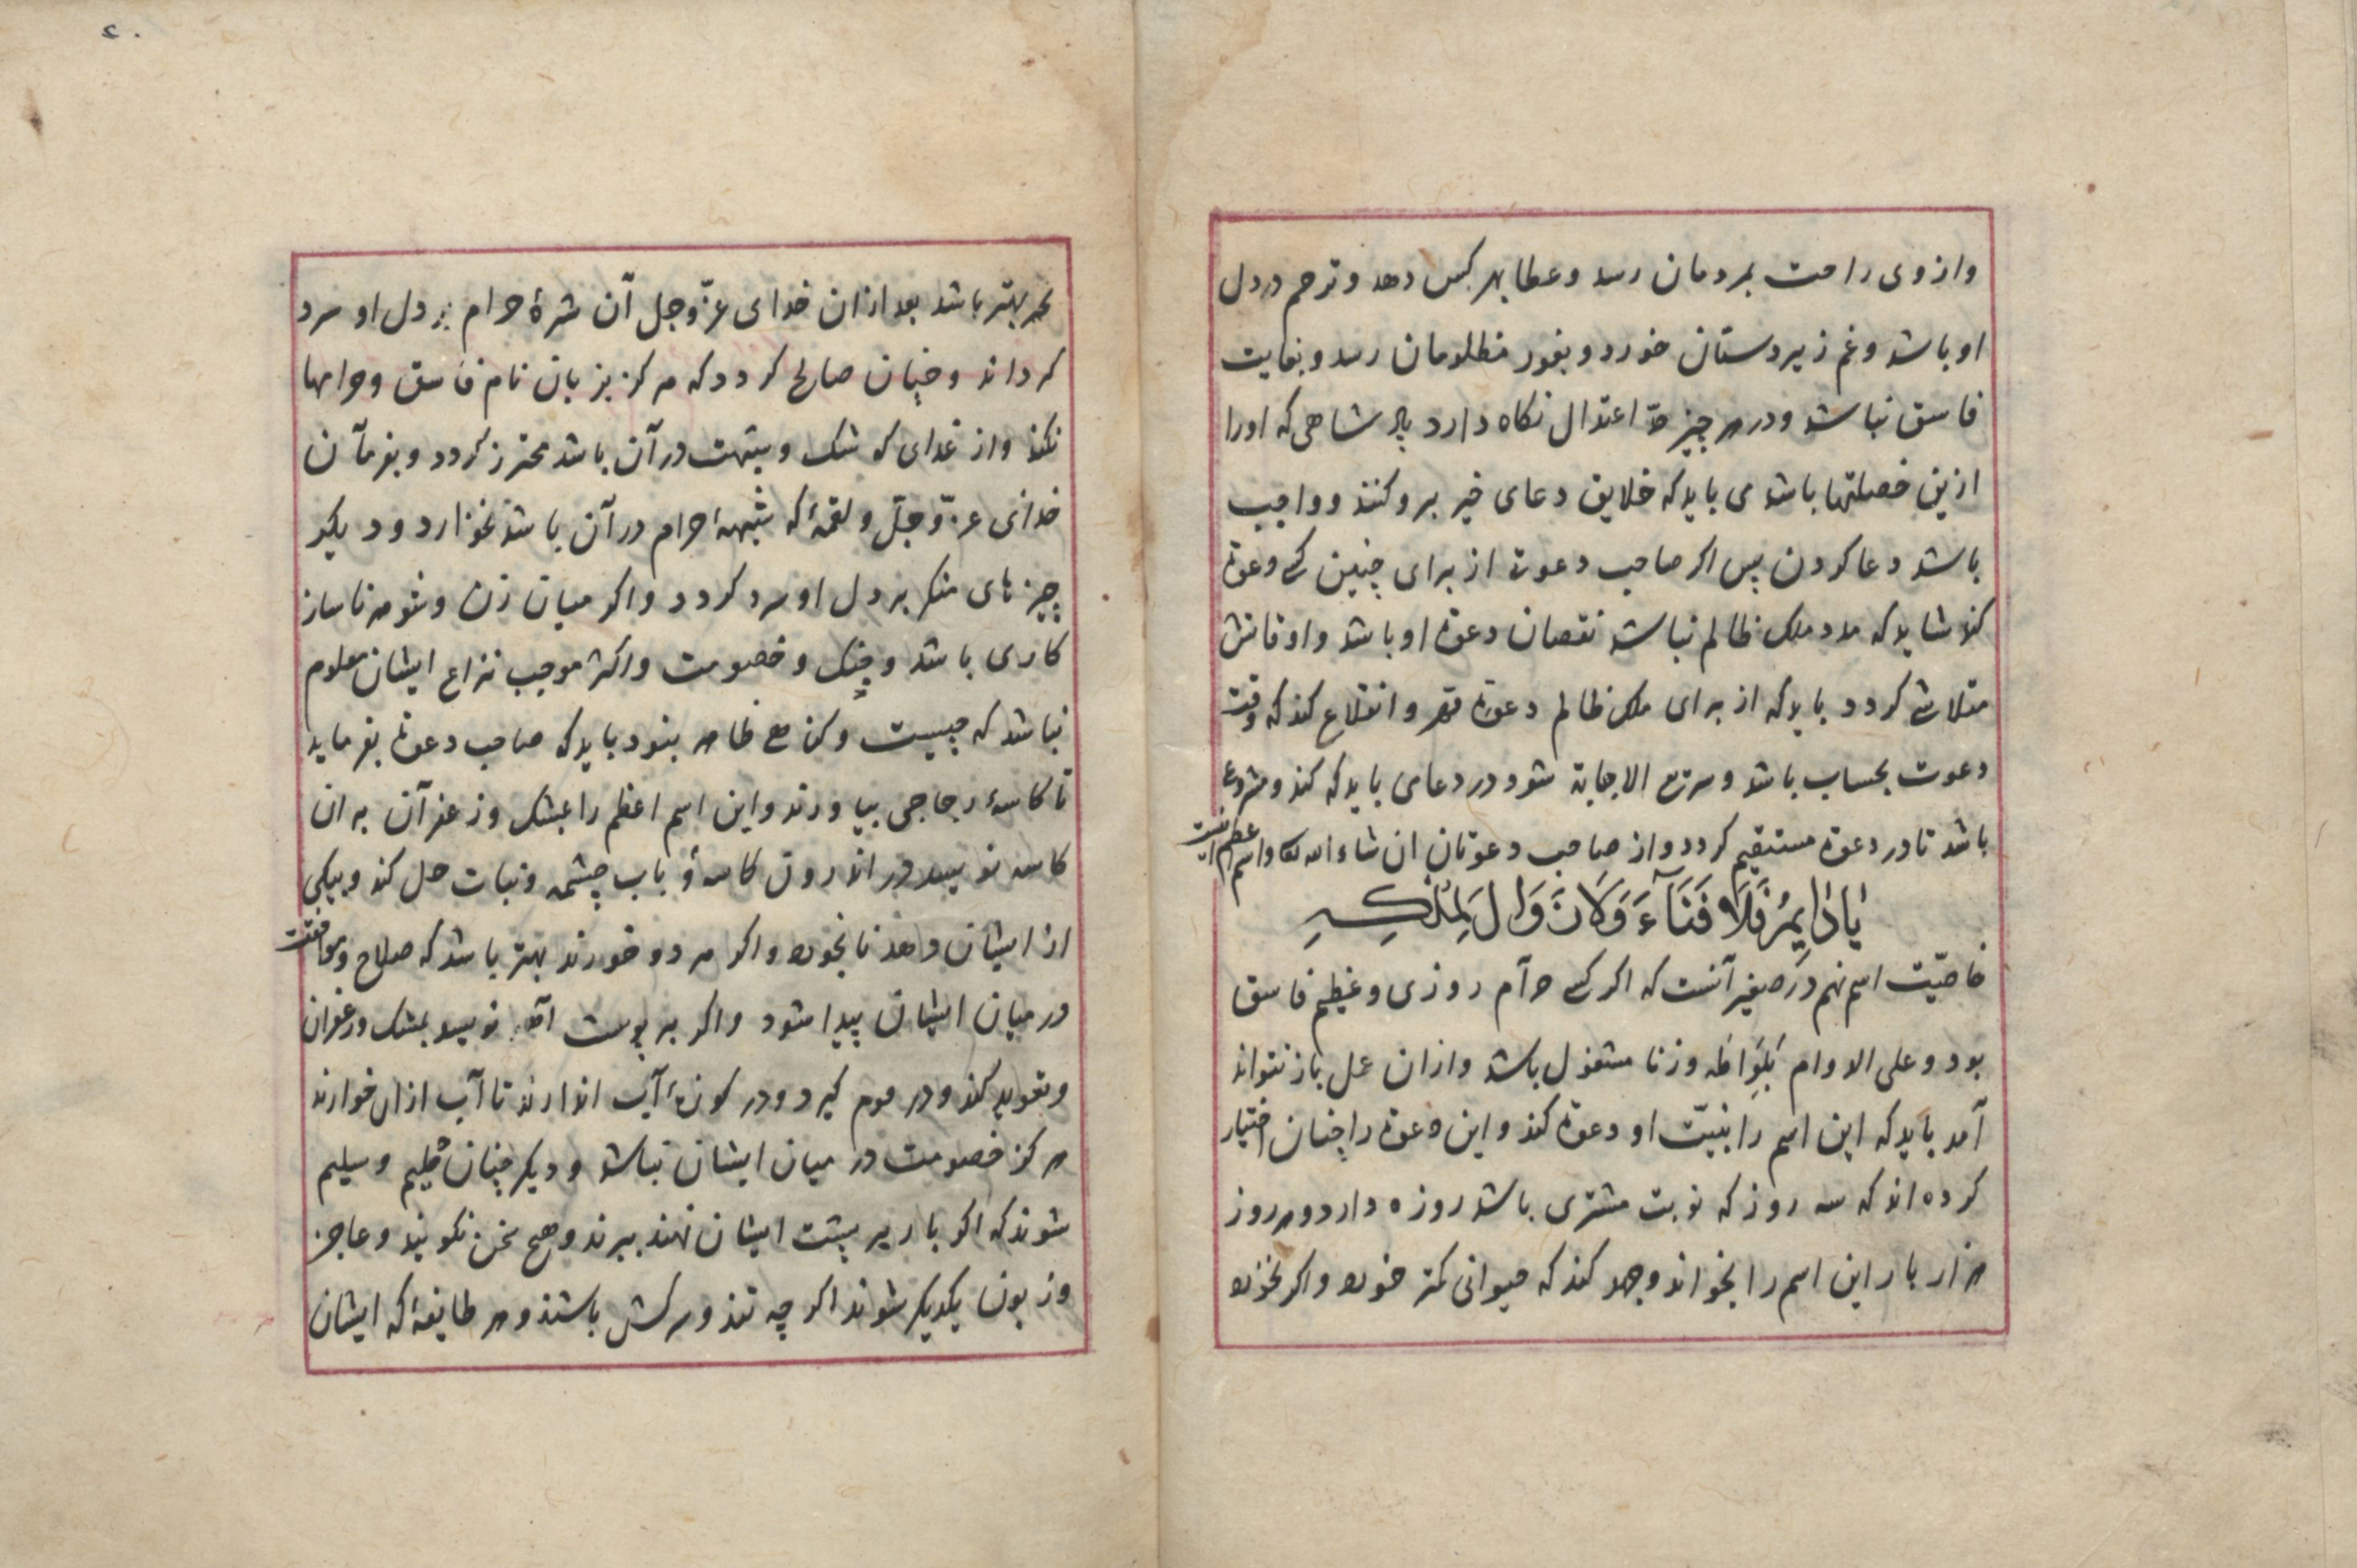 وازوی راحت بمردمان رسد وعطا بهر کس دهد وترحم در دل
او باشد وغم زیردستان خورد وبغور مظلومان رسد وبغایت
فاسق نباشد ودر هر چیز حدّ اعتدال نکاه دارد پادشاهی که اورا
ازین خصلتها باشد می باید که خلایق دعای خیر برو کنند وواجب
باشد دعا کردن پس اکر صاحب دعوت از برای چنین کسی دعوة
کند شاید که مدد ملک ظالم نباشد نقصان دعوة او باشد واوقاتش
متلاشی کردد باید که از برای ملک ظالم دعوة قهر وانقلاع کند که وقت
دعوت بحساب باشد وسریع الاجابة شود در دعا می باید که کند ومشروع
باشد تا در دعوة مستقیم کردد واز صاحب دعوتان ان شاء الله تعالی واسم اعظم اینست
یَا دَایِمُ فَلَا فَنَآءَ وَلَا زَوَالَ لِمُلْکِهِ
خاصیّت اسم نهم در صغیر آنست که اکر کسی حرآم روزی وعظیم فاسق
بود وعلی الاوام بلواطه وزنا مشغول باشد وازان عمل باز نتواند
آمد باید که این اسم را بنیّت او دعوة کند واین دعوة را چنان اختیار
کرده اند که سه روز که نوبت مشتری باشد روزه دارد وهر روز
هزار بار این اسم را بخواند وجهد کند که حیوانی کمتر خورد واکر نخورد
۲۰
بهتر باشد بعد ازان خدای عزّ وجل آن شرۀ حرام بر دل او سرد
کرداند وچنان صالح کردد که هرکز بزبان نام فاسق وحرامها
نکند واز غدای که شک وشبهت در آن باشد محترز کردد وبفرمآن
خدای عزّ وجلّ ولقمۀ که شبهۀ حرام در آن باشد نخوارد ودیکر
چیزهای منکر بر دل او سرد کردد واکر میان زن وشوهر ناساز
کاری باشد وجنک وخصومت واکثر موجب نزاع ایشان معلوم
نباشد که چیست وکن مع ظاهر بنود باید که صاحب دعوة بفرماید
تا کاسۀ زجاجی بیاورند واین اسم اعظم را بمشک وزعفرآن بران
کاسه نویسد در اندرون کاسه وباب چشمه ونبات حل کند وبیکی
از ایشان دهد تا بخورد واکر هر دو خورند بهتر باشد که صلاح وموافقت
در میان ایشان پیدا شود واکر بر پوست آهو نویسد بمشک وزعفران
وتعوید کند ودر موم کیرد ودر کوزۀ آب اندازند تا آب ازان خوارند
هرکز خصومت در میان ایشان نباشد ودیکر چنان حلیم وسلیم
شوند که اکر بار بر پشت ایشان نهند ببرند وهیچ سخن نکویند وعاجز
وزبون یکدیکر شوند اکر چه تند وسرکش باشند وهر طایفۀ که ایشان